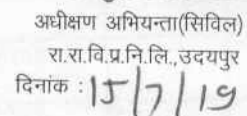 अधीक्षण अभियन्ता(सिविल)
रा.रा.वि.प्र.नि.लि.,उदयपुर
दिनांक : 15/7/19